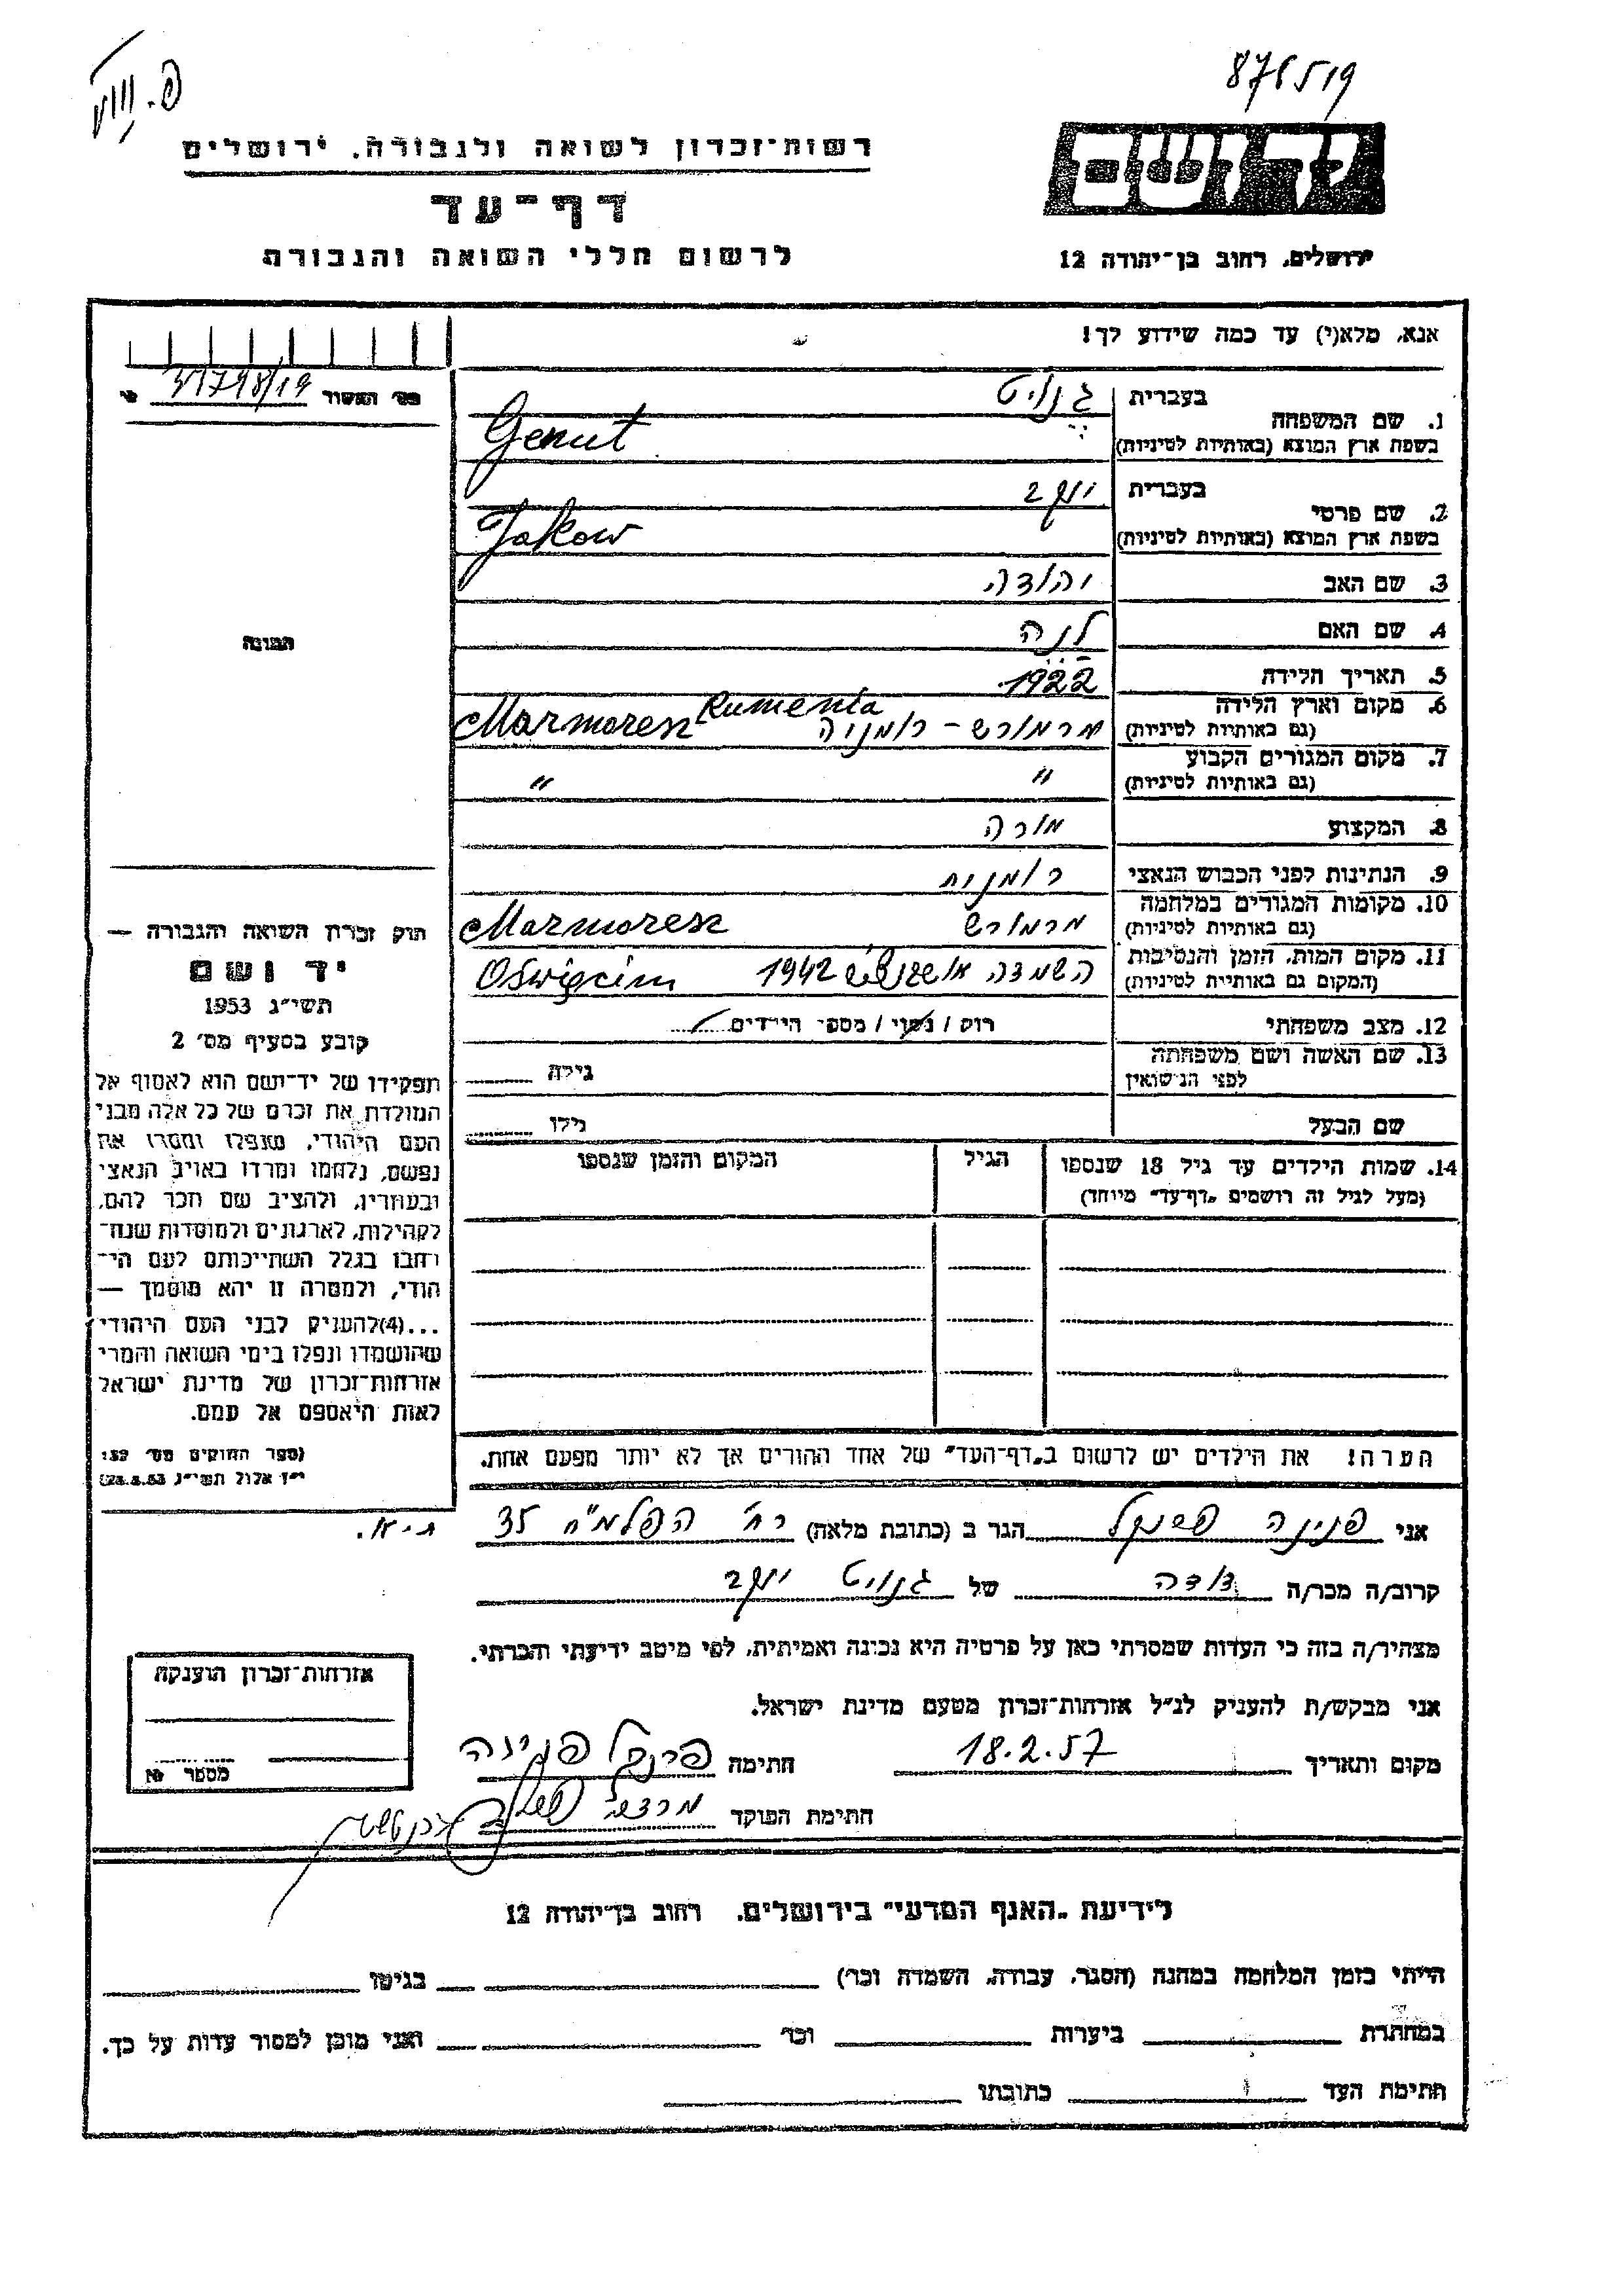 876519
רשות־זכרון לשואה ולגבורה. ירושלים
דף־עד
לרשום חללי השואה והגבורה
ירושלים, רחוב בן־יהודה 12
אנא, מלא(י) עד כמה שידוע לך!
מס׳ האשור
בעברית גנויט
1. שם המשפחה
בשפת ארץ המוצא (באותיות לטיניות) Genut
בעברית יעקב
2. שם פרטי
בשפת ארץ המוצא (באותיות לטיניות) Jakow
3. שם האב יהודה
4. שם האם לנה
5. תאריך הלידה 1922
6. מקום וארץ הלידה מרמורש - רומניה Marmoresz Rumenia
(גם באותיות לטיניות)
7. מקום המגורים הקבוע " "
(גם באותיות לטיניות)
8. המקצוע מורה
9. הנתינות לפני הכבוש הנאצי רומנית
10. מקומות המגורים במלחמה מרמורש Marmoresz
(גם באותיות לטיניות)
11. מקום המות, הזמן והנסיבות השמדה 1942 Oświęcim
(המקום גם באותיות לטיניות)
12. מצב משפחתי רוק / נשוי / מספר הילדים
13. שם האשה ושם משפחתה גילה
לפני הנישואין
שם הבעל גילו
14. שמות הילדים עד גיל 18 שנספו הגיל המקום והזמן שנספו
(מעל לגיל זה רושמים „דף־עד" מיוחד)
הערה! את הילדים יש לרשום ב„דף־העד" של אחד ההורים אך לא יותר מפעם אחת.
התמונה
חוק זכרון השואה והגבורה —
יד ושם
תשי״ג 1953
קובע בסעיף מס׳ 2
תפקידו של יד־ושם הוא לאסוף אל
המולדת את זכרם של כל אלה מבני
העם היהודי, שנפלו ומסרו את
נפשם, נלחמו ומרדו באויב הנאצי
ובעוזריו, ולהציב שם וזכר להם,
לקהילות, לארגונים ולמוסדות שנח־
רבו בגלל השתייכותם לעם הי־
הודי, ולמטרה זו יהא מוסמך —
...(4)להעניק לבני העם היהודי
שהושמדו ונפלו בימי השואה והמרי
אזרחות־זכרון של מדינת ישראל
לאות היאספם אל עמם.
(ספר החוקים מס׳ 132
י״ז אלול תשי״ג 28.8.53)
אני פנינה פרנקל הגר ב (כתובת מלאה) רח׳ הפלמ״ח 35 ת״א.
קרוב/ה מכר/ה דודה של גנויט יעקב
מצהיר/ה בזה כי העדות שמסרתי כאן על פרטיה היא נכונה ואמיתית, לפי מיטב ידיעתי והכרתי.
אני מבקש/ת להעניק לנ״ל אזרחות־זכרון מטעם מדינת ישראל.
מקום ותאריך 18.2.57 חתימה פרנקל פנינה
חתימת הפוקד
אזרחות־זכרון הוענקה
מספר
לידיעת „האגף המדעי" בירושלים. רחוב בן־יהודה 12
הייתי בזמן המלחמה במחנה (הסגר, עבודה, השמדה וכו׳) בגיטו
במחתרת ביערות וכו׳ ואני מוכן למסור עדות על כך.
חתימת העד כתובתו